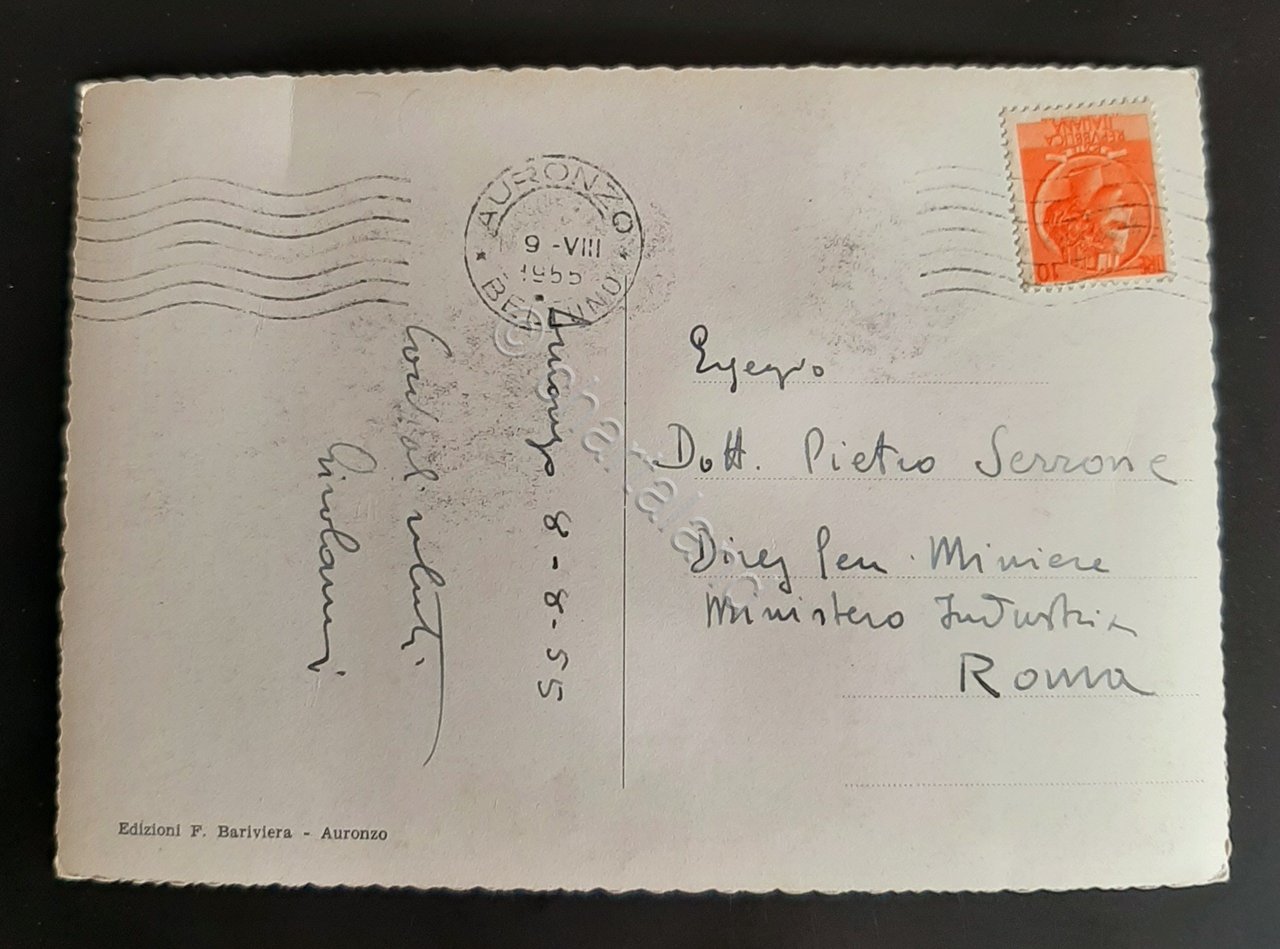 AURONZO
9 -VIII
1955
BELLUNO
REPVBBLICA
ITALIANA
LIRE 10
Auronzo 8-8-55
Cordiali saluti
Girolami
Egregio
Dott. Pietro Serrone
Direz Gen. Miniere
Ministero Industria
Roma
Edizioni F. Bariviera - Auronzo